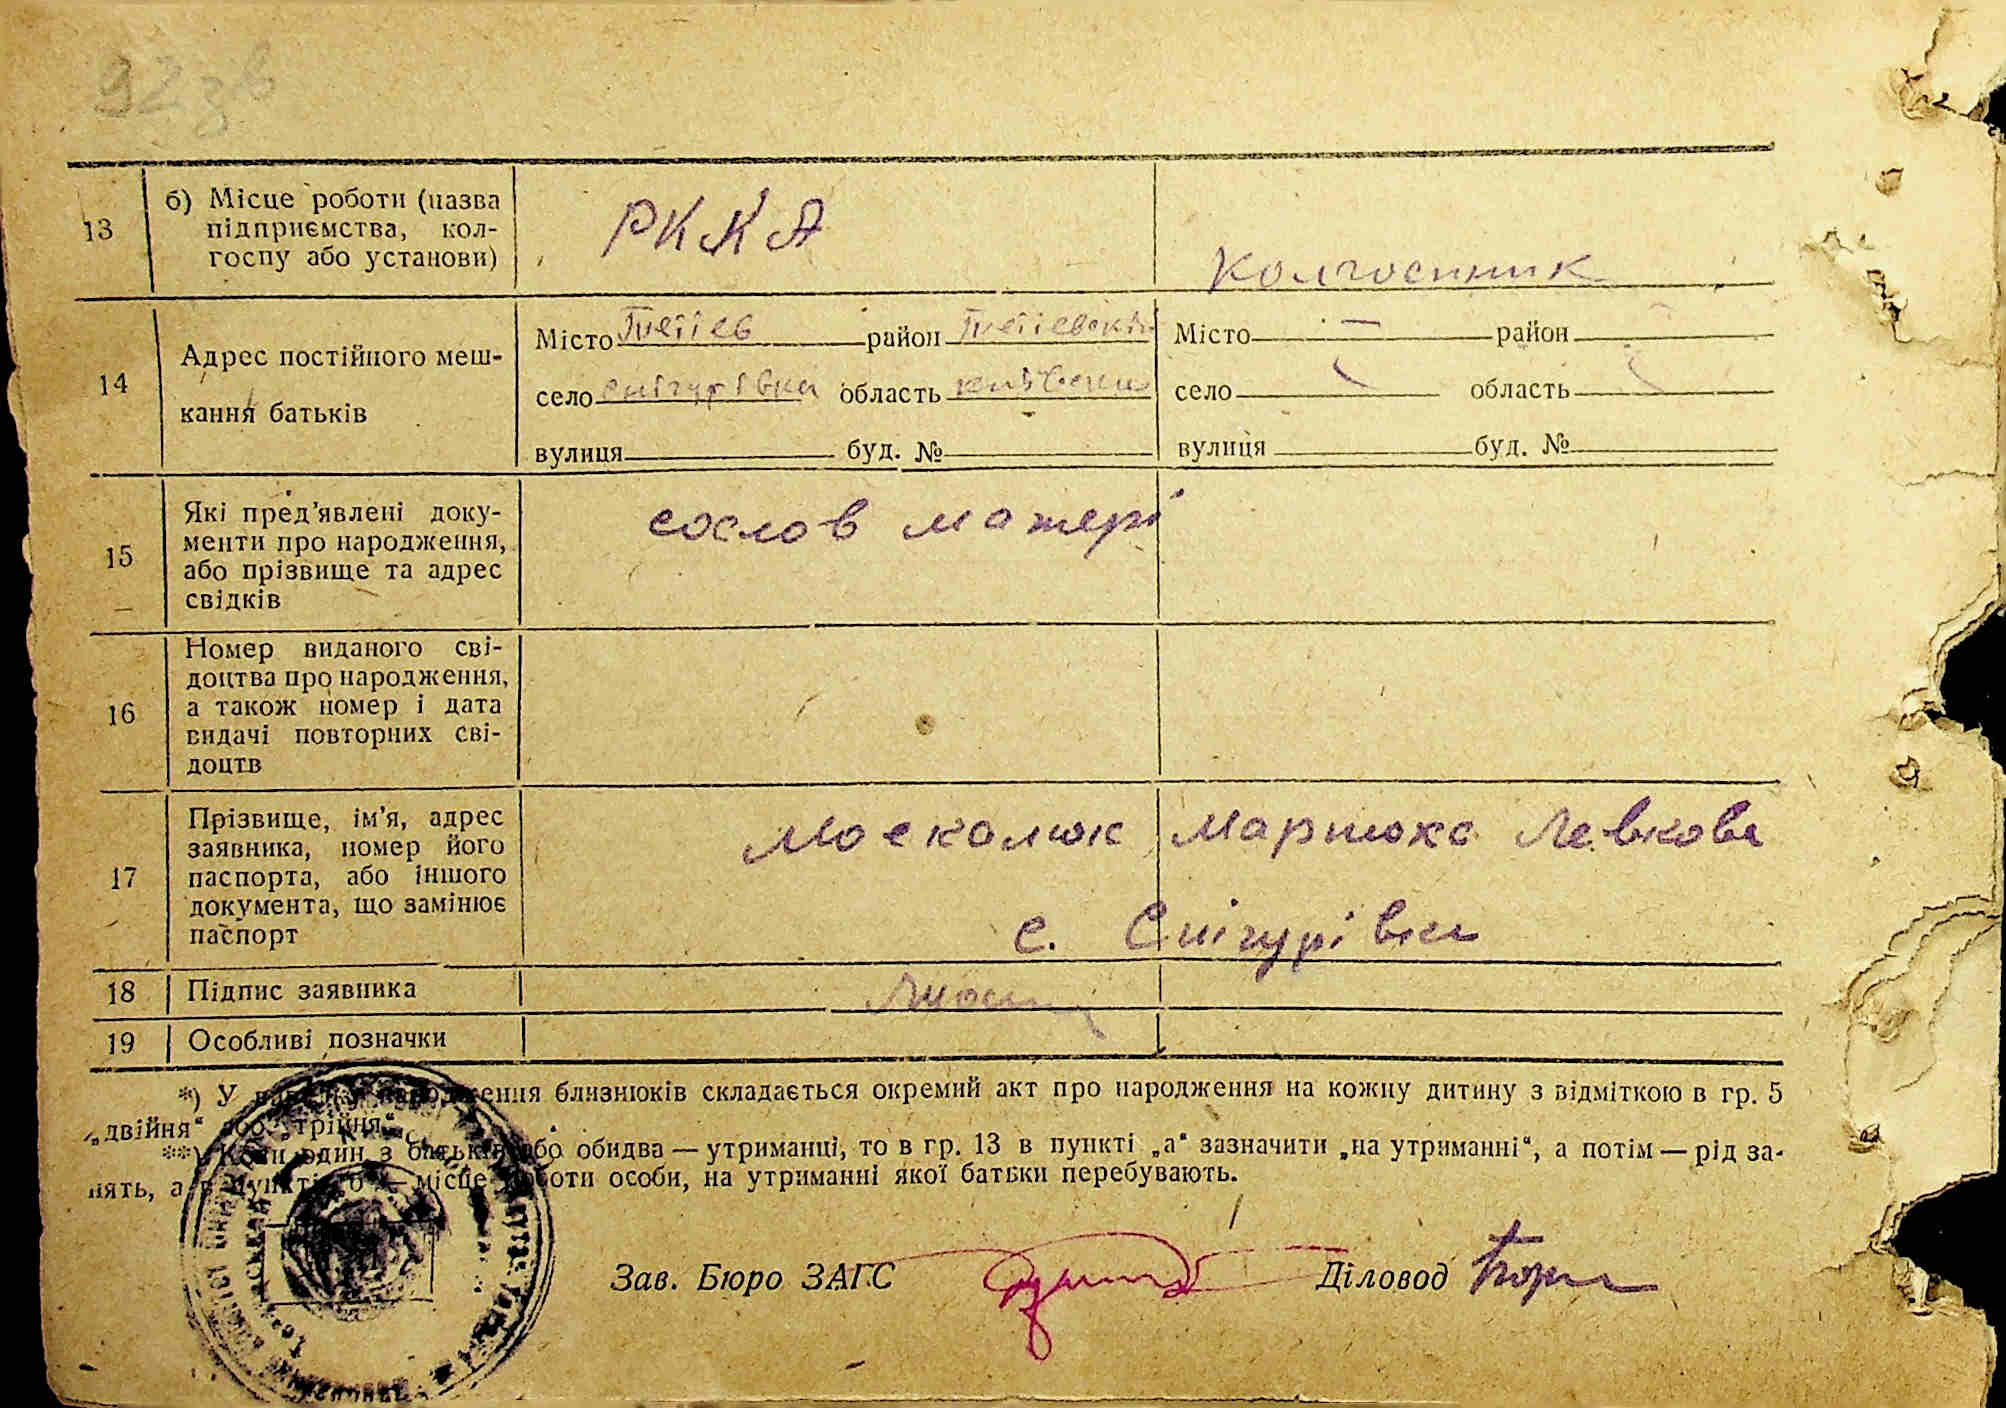 92 зв
13 б) Місце роботи (назва підприємства, колгоспу або установи) РККА колгоспник
14 Адрес постійного мешкання батьків
Місто Тетіев район Тетіевский Місто — район —
село Снігурівка область київська село область
вулиця буд. № вулиця буд. №
15 Які пред'явлені документи про народження, або прізвище та адрес свідків сослов матері
16 Номер виданого свідоцтва про народження, а також номер і дата видачі повторних свідоцтв
17 Прізвище, ім'я, адрес заявника, номер його паспорта, або іншого документа, що замінює паспорт Москалюк Левкова
с. Снігурівка
18 Підпис заявника
19 Особливі позначки
*) У випадку народження близнюків складається окремий акт про народження на кожну дитину з відміткою в гр. 5
„двійня“ або „трійня“.
**) Коли один з батьків або обидва — утриманці, то в гр. 13 в пункті „а“ зазначити „на утриманні“, а потім — рід за-
нять, а в пункті „б“ — місце роботи особи, на утриманні якої батьки перебувають.
Зав. Бюро ЗАГС Діловод